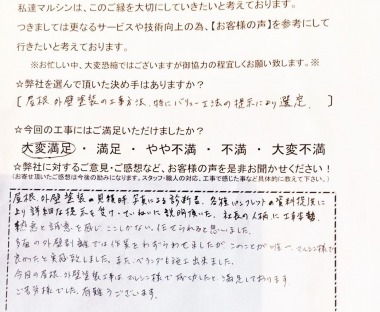 私達マルシンは、このご縁を大切にしていきたいと考えております。
つきましては更なるサービスや技術向上の為、【お客様の声】を参考にして
行きたいと考えております。
※お忙しい中、大変恐縮ではございますが御協力の程宜しくお願い致します。※
☆弊社を選んで頂いた決め手はありますか？
[ 屋根、外壁塗装の工事方法、特にバリュー工法の提示により選定。 ]
☆今回の工事にはご満足いただけましたか？
大変満足 ・ 満足 ・ やや不満 ・ 不満 ・ 大変不満
☆弊社に対するご意見・ご感想など、お客様の声を是非お聞かせください！
(お寄せ頂いたご感想は今後の励みになります。スタッフ・職人の対応、工事で感じた事など具体的に教えて下さい。)
屋根、外壁塗装の見積時、写真による診断書、各種パンフレットの資料提供に
より詳細な提示を受け、ていねいに説明頂いた。社長の人柄に工事姿勢、
熱意と誠意を感じ ここしかない、任せられると思いました。
の外壁 では作業をわずらわせましたが、このことが マルシン様で
良かったと実感致しました。また、ベランダも施工出来ました。
今回の屋根、外壁塗装工事はマルシン様で成功したと、満足しております
ご苦労様でした。有難うございます。